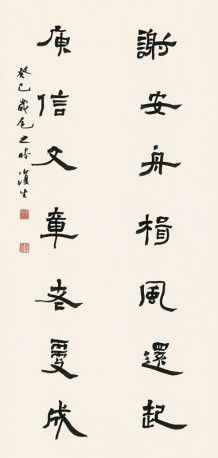 謝安舟楫風還起
庾信文章老更成
癸巳歲之時